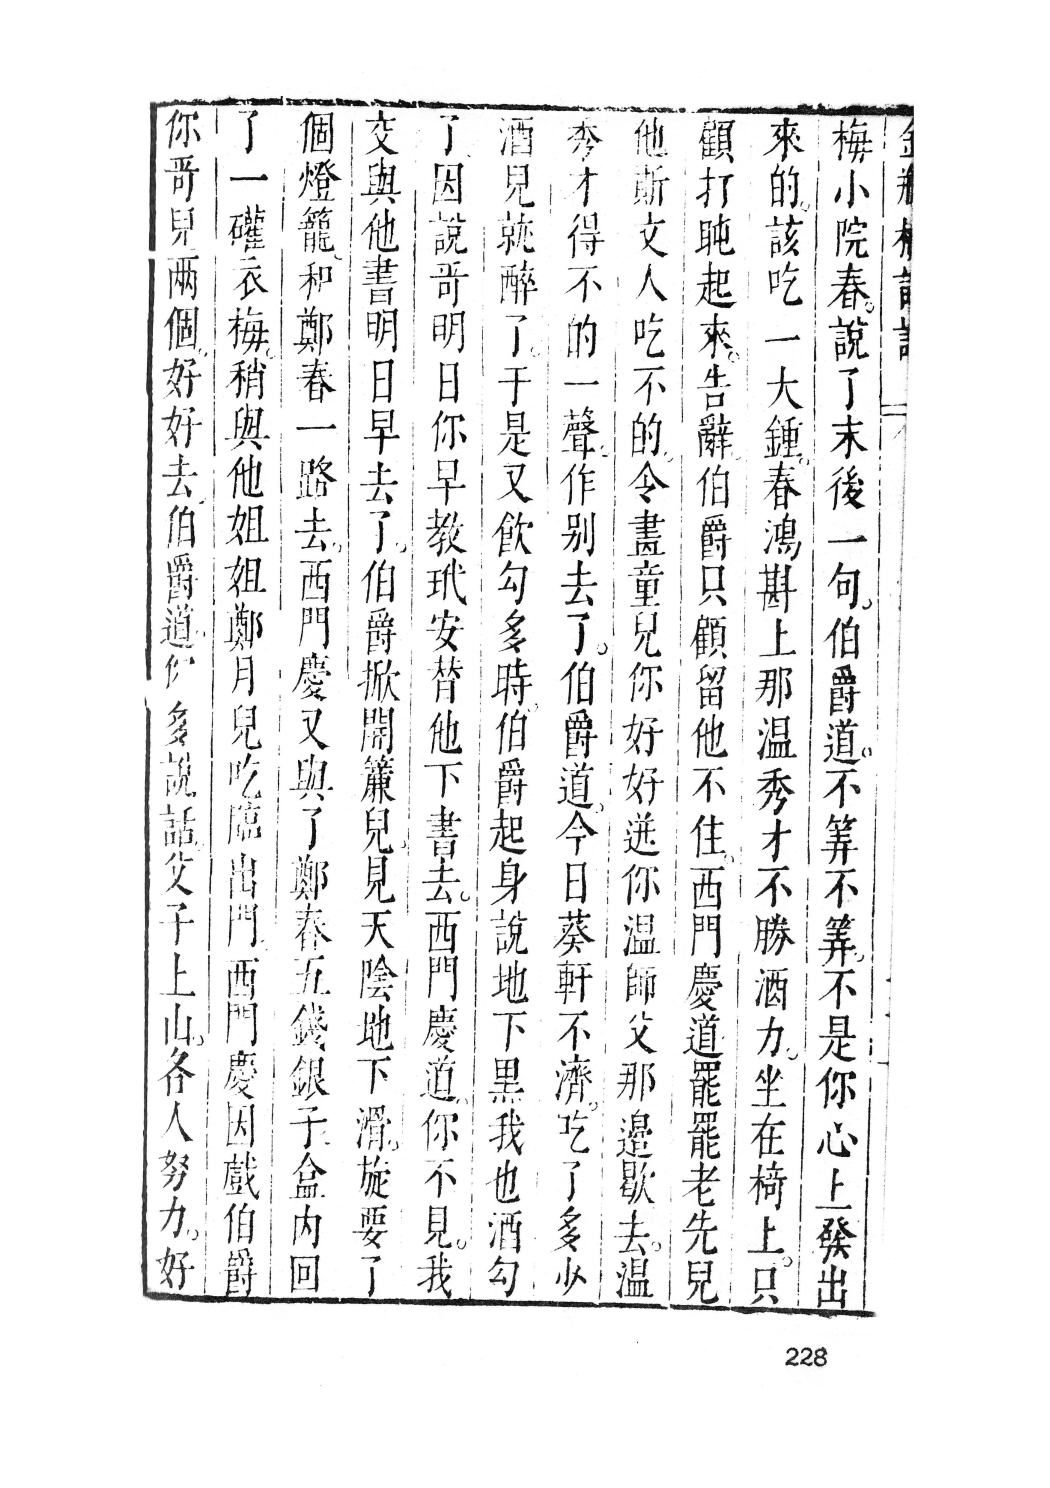 金瓶梅詞話
梅小院春。說了末後一句。伯爵道。不筭不筭。不是你心上發出
來的。該吃一大鍾。春鴻斟上那温秀才不勝酒力。坐在椅上。只
顧打盹起來。告辭。伯爵只顧留他不住。西門慶道罷罷老先兒
他斯文人吃不的。令畫童兒你好好送你温師父那邉歇去。温
秀才得不的一聲。作别去了。伯爵道。今日葵軒不濟。吃了多少
酒兒就醉了。于是又飲勾多時。伯爵起身說地下黒我也酒勾
了因說哥明日你早教玳安替他下書去。西門慶道。你不見。我
交與他書明日早去了。伯爵掀開簾兒。見天陰地下滑。旋要了
個燈籠。和鄭春一路去。西門慶又與了鄭春五錢銀子。盒内回
了一礶衣梅。稍與他姐姐鄭月兒吃。臨出門。西門慶因戲伯爵
你哥兒兩個。好好去。伯爵道。你多說話。父子上山。各人努力。好
228